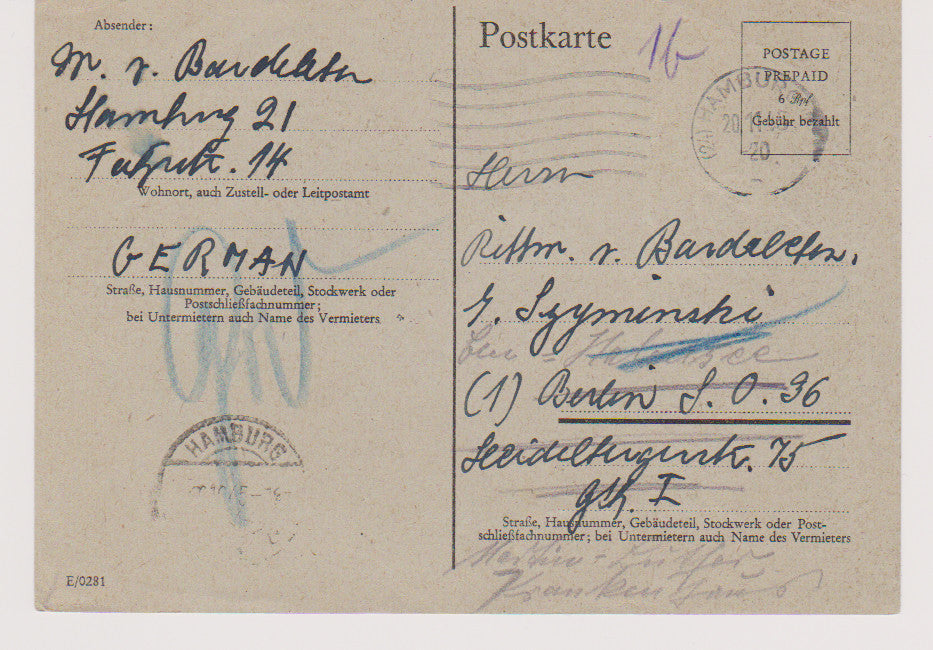 Absender:
M. v. Bardeleben
Hamburg 21
14
Wohnort, auch Zustell- oder Leitpostamt
GERMAN
Straße, Hausnummer, Gebäudeteil, Stockwerk oder
Postschließfachnummer;
bei Untermietern auch Name des Vermieters
HAMBURG
E/0281
Postkarte
16
POSTAGE
PREPAID
6 Rpf
Gebühr bezahlt
(24) HAMBURG
20
Herrn
Rittm. v. Bardeleben,
Szyminski
Halensee
(1) Berlin S.O. 36
75
I
Straße, Hausnummer, Gebäudeteil, Stockwerk oder Post-
schließfachnummer; bei Untermietern auch Name des Vermieters
Martin-Luther
Krankenhaus